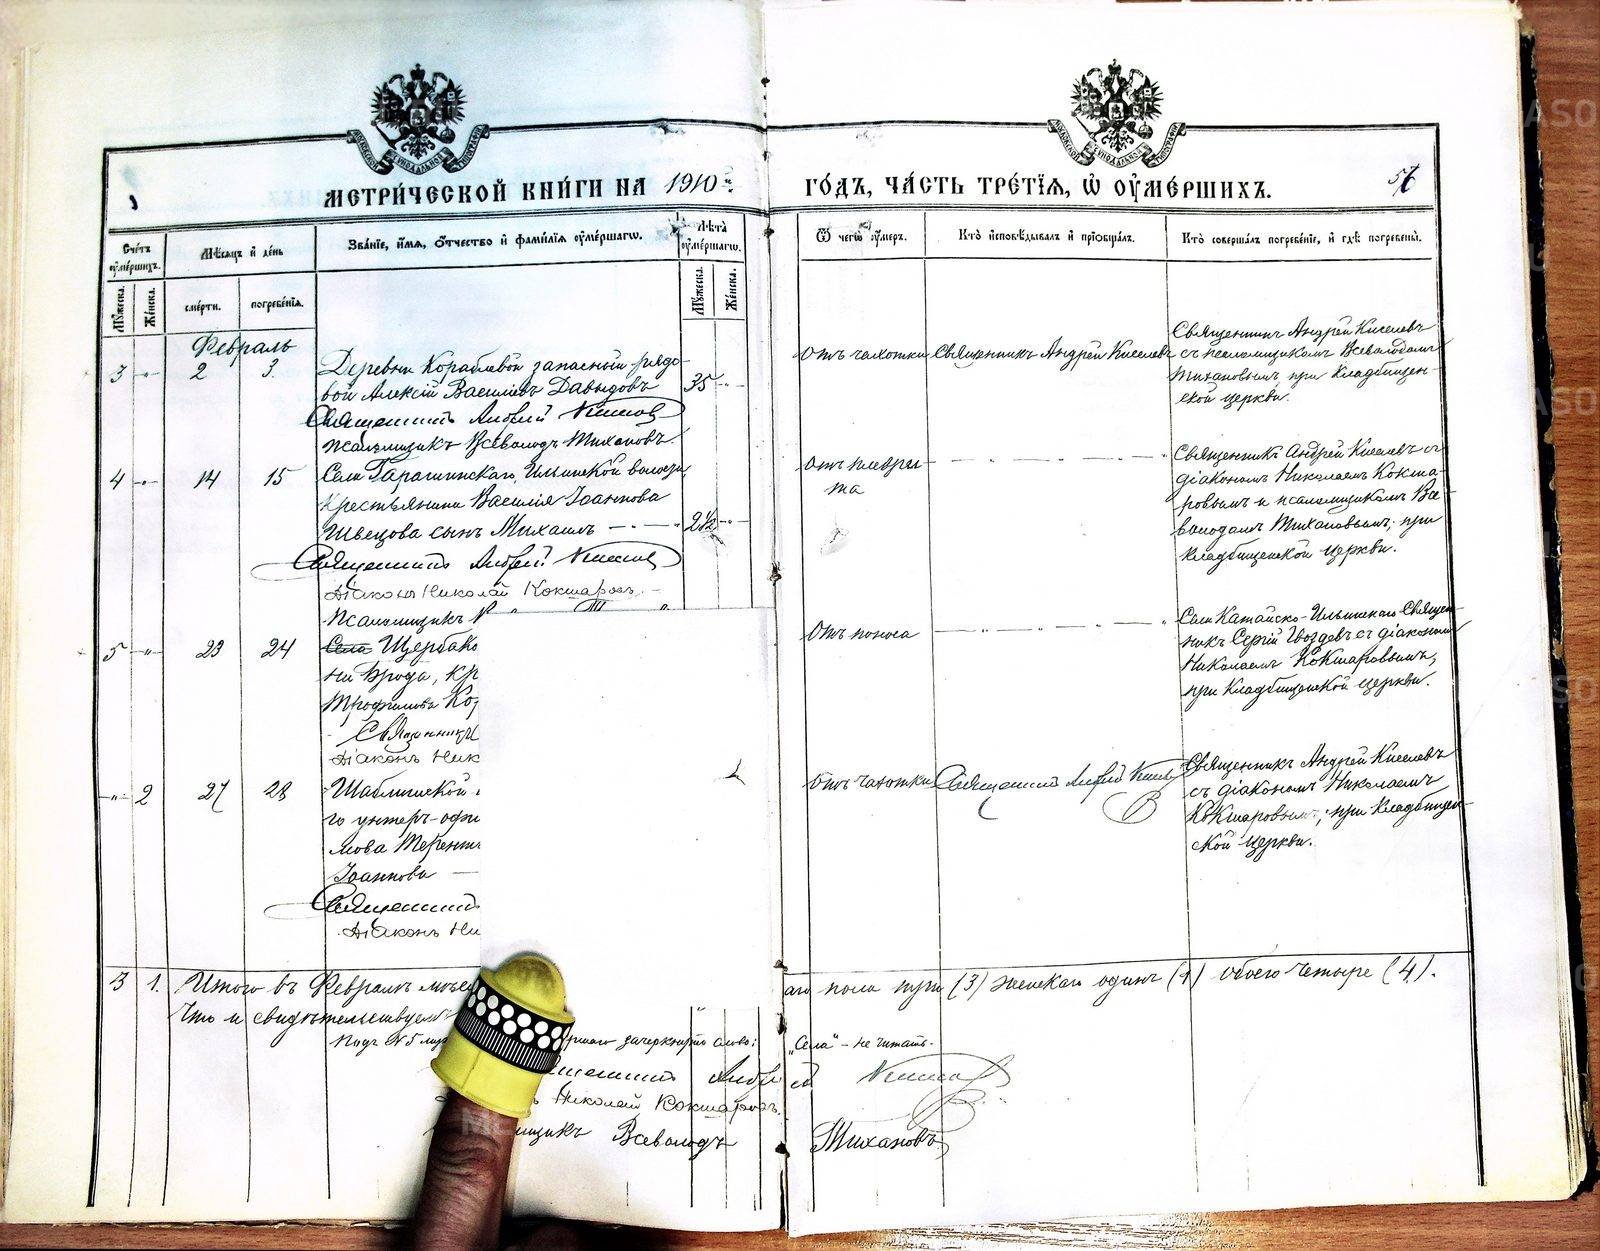 МЕТРИ́ЧЕСКОЙ КНИ́ГИ НА 1910 ГО́ДЪ, ЧА́СТЬ ТРЕ́ТІЯ, Ѡ ОУМЕ́РШИХЪ.
Сче́тъ оуме́ршихъ.
Мꙋ́жеска.
Же́нска.
Мѣ́сяцъ и де́нь
сме́рти.
погребе́нія.
Зва́ніе, и́мя, о́тчество и фами́лія оуме́ршагѡ.
Лѣта̀ оуме́ршагѡ.
Мꙋ́жеска.
Же́нска.
Ѿ чегѡ̀ оу́меръ.
Кто̀ исповѣ́дывалъ и пріобща́лъ.
Кто̀ соверша́лъ погребе́ніе, и гдѣ̀ погребены̀.
Февраль
3 - " - 2 3.
Деревни Кораблевой запасный рядо-
вой Алексій Василіевъ Давыдовъ 35 - " -
Священникъ Андрей Киселевъ
Псаломщикъ Всеволодъ Тихановъ.
Отъ чахотки
Священникъ Андрей Киселевъ
Священникъ Андрей Киселевъ
съ псаломщикомъ Всеволодомъ
Тихановымъ, при Кладбищен-
ской церкви.
4 - " - 14 15
Села Ильинской волости,
крестьянина Василія Іоаннова
Швецова сынъ Михаилъ - " - 2½ - " -
Священникъ Андрей Киселевъ
Діаконъ Николай Кокшаровъ.
Псаломщикъ
Отъ плеври-
та
Священникъ Андрей Киселевъ съ
діакономъ Николаемъ Кокша-
ровымъ и псаломщикомъ Все-
володомъ Тихановымъ, при
Кладбищенской церкви.
5 - " - 23 24
Села Щербако
ни Брода, кр
Трофимова Ко
Священникъ
Діаконъ Ник
Отъ поноса
Села Катайско-Ильинскаго Священ-
никъ Сергій Гвоздевъ съ діакономъ
Николаемъ Кокшаровымъ,
при Кладбищенской церкви.
- " - 2 27 28
го унтеръ-офи
мова Терентъ
Іоаннова
Священникъ
Діаконъ Ни
Отъ чахотки
Священникъ Андрей Киселевъ
Священникъ Андрей Киселевъ
съ діакономъ Николаемъ
Кокшаровымъ, при Кладбищен-
ской церкви.
3 1. Итого въ Февралѣ мѣся аго пола три (3) женскаго одинъ (1) обоего четыре (4).
Что и свидѣтельствуемъ
Подъ №5 зачеркнуто слово: „Села" - не читать.
Андрей Киселевъ
Николай Кокшаровъ.
щикъ Всеволодъ Тихановъ